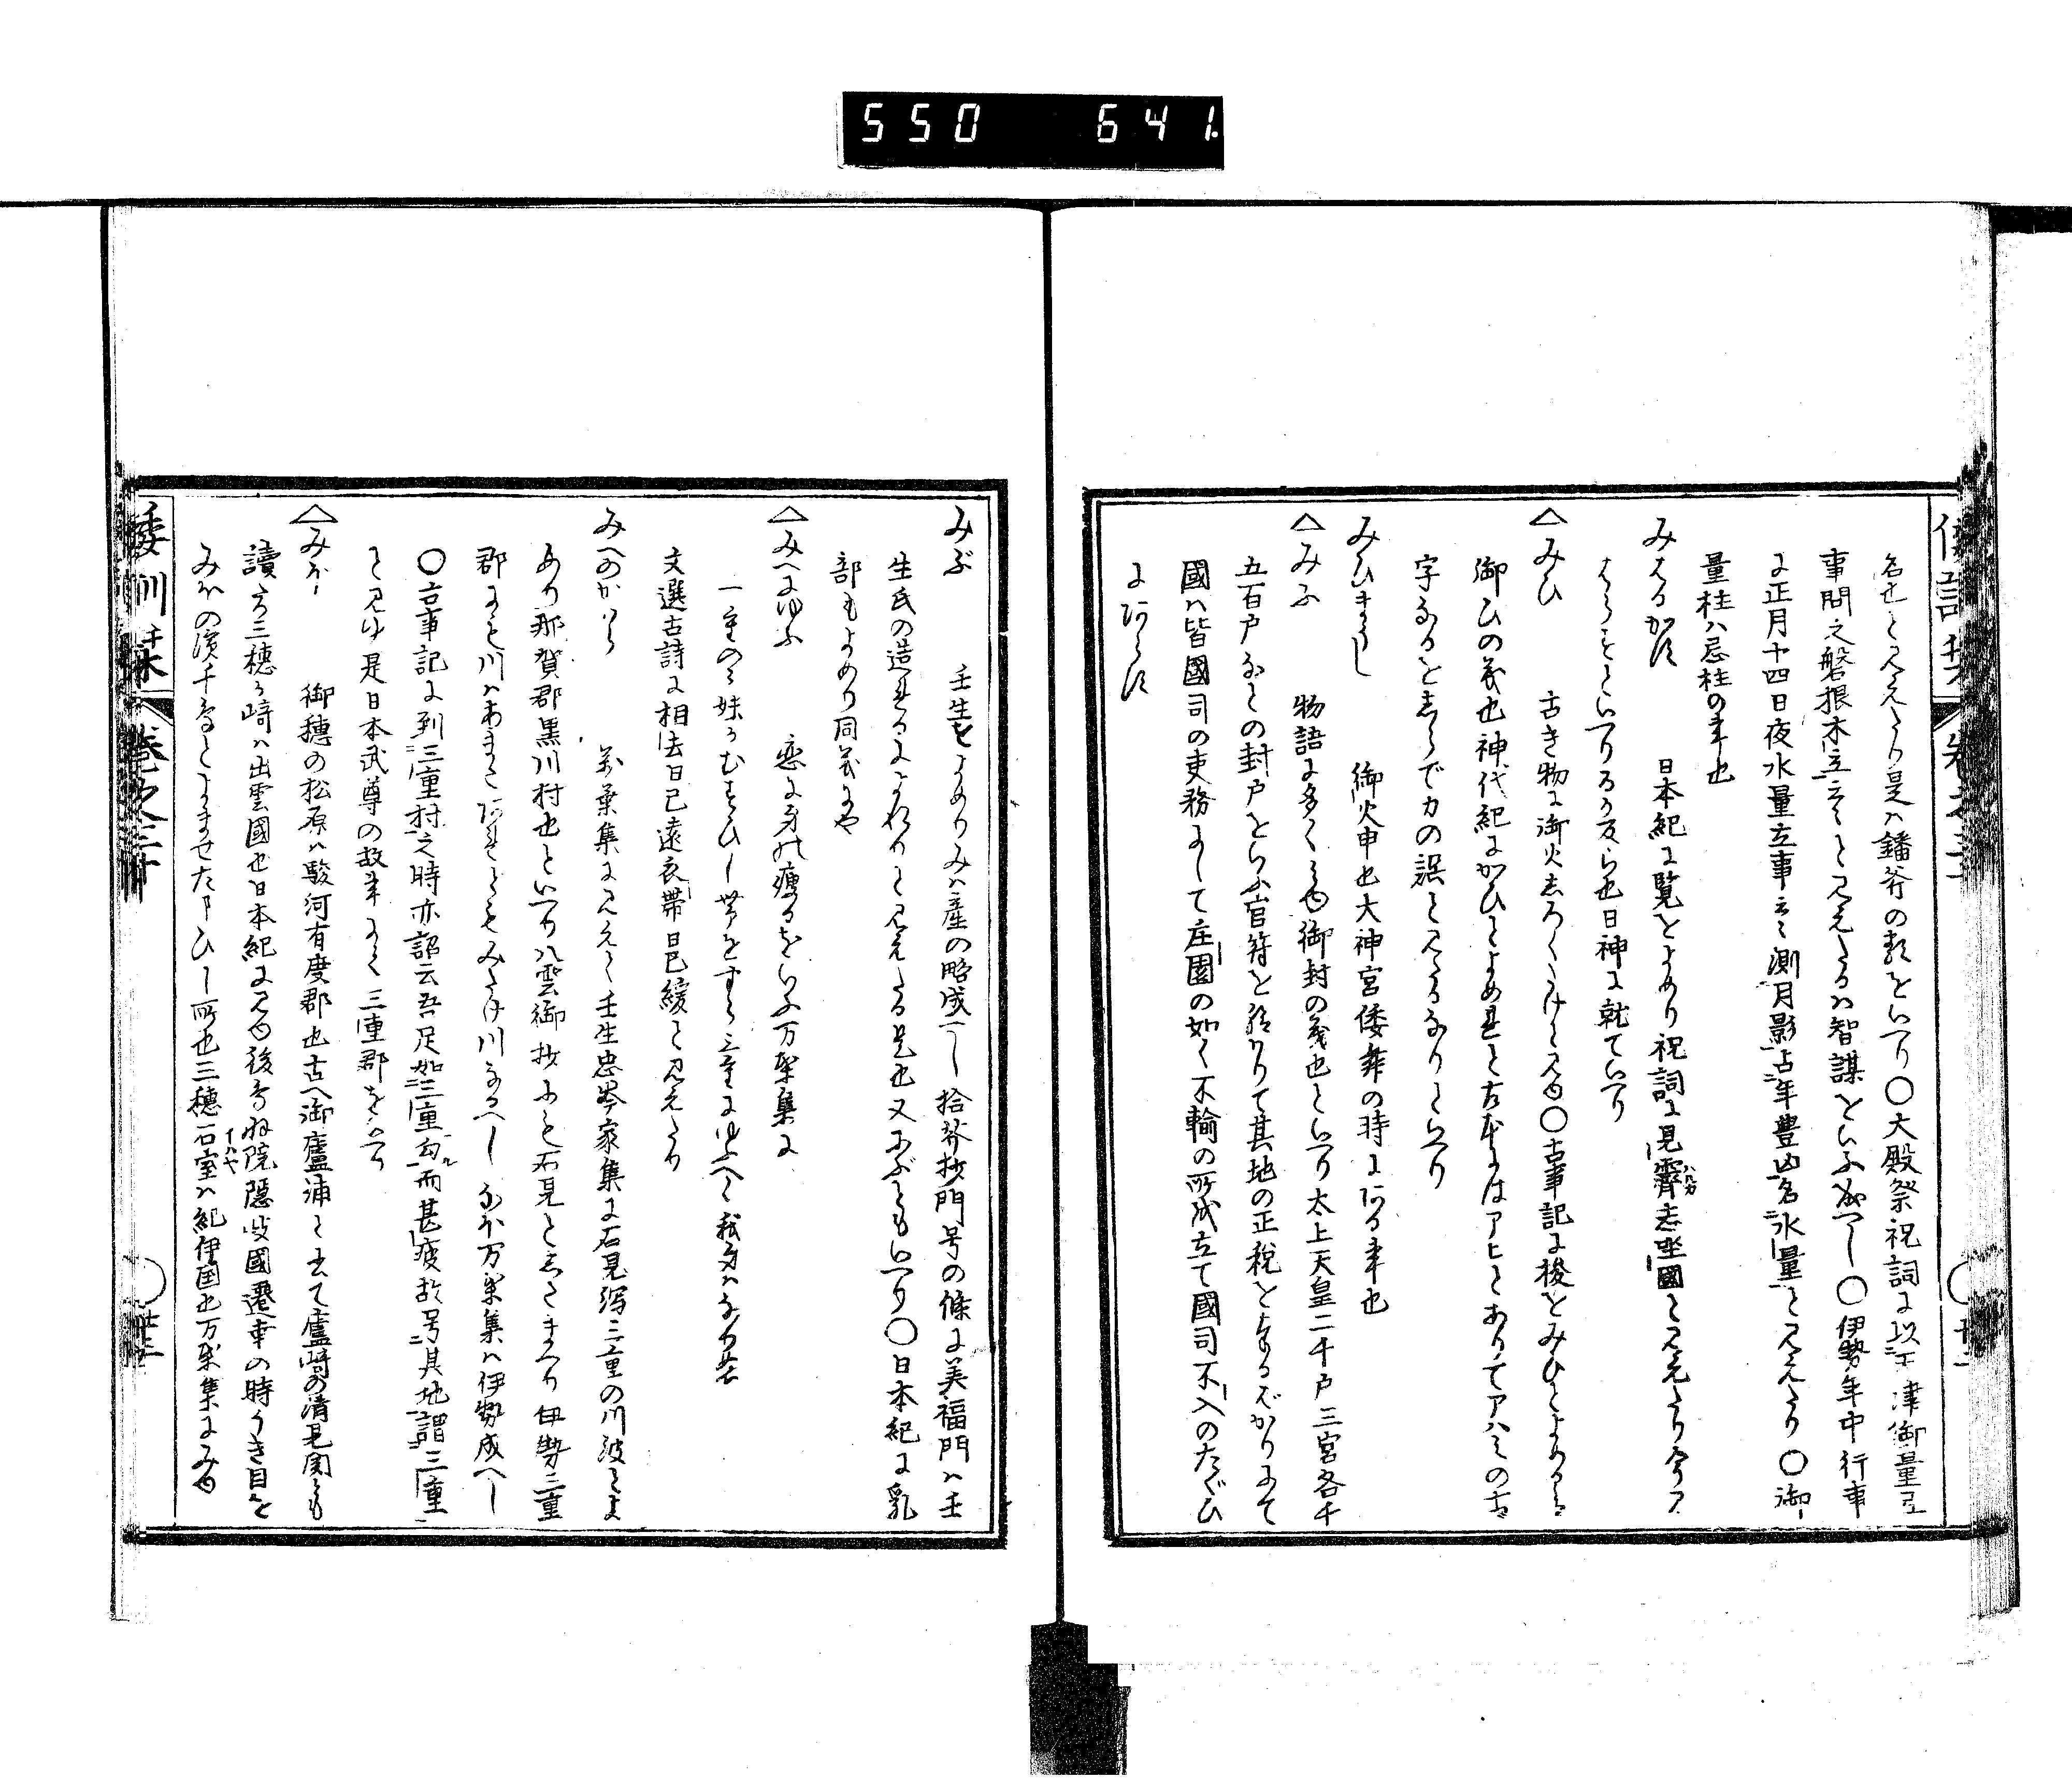 550 641
名也と見えたり是ハ鐇斧の類をいへり○大殿祭祝詞に以天津御量
事問之磐根木立云々と見えたるハ智謀をいふ成へし○伊勢年中行事
に正月十四日夜水量立事云々測月影占年豊凶名水量と見えたり○御
量柱ハ忌柱の事也
みはるかす 日本紀に覧をよめり祝詞に見霽志坐國と見えたり今ノ
はらすといへるか如ら也日神に就ていへり
△みひ 古き物に御火しろくたけと見ゆ○古事記に梭をみひとよめるは
御ひの義也神代紀にかひとよめれと古本にはアヒとありてアハミの古
字なるをしらでカの誤と見たるなりといへり
みひまうし 御火申也大神宮倭舞の時にある事也
△みふ 物語に多く見ゆ御封の義也といへり太上天皇二千戸三宮各千
五百戸などの封戸をいふ官符を給ハりて其地の正税を奉るばかりにて
國ハ皆國司の吏務にして庄園の如く不輸の所成立て國司不入のたぐひ
にあらす
みぶ 壬生をよめりみハ産の略成へし拾芥抄門号の條に美福門ハ壬
生氏の造れるによれりと見えたる是也又にぶともいへり○日本紀に乳
部もよめり同義にや
△みへにゆふ 恋に身の痩るをいふ万葉集に
一重のミ妹かむすひし帶をすら三重にゆふへく我身ハなりぬ
文選古詩に相去日已遠衣帶日已緩と見えたり
みへのかはら 万葉集に見えて壬生忠岑家集に石見瀉三重の川波とよ
めり那賀郡黒川村也といへり八雲御抄にも石見としるさまへり伊勢三重
郡にも川ハあまたあれともみたけ川なるへしなほ万葉集ハ伊勢成へし
○古事記に到三重村之時亦詔云吾足如三重勾而甚疲故号其地謂三重
と見ゆ是日本武尊の故事にて三重郡をいへり
△みほ 御穂の松原ハ駿河有度郡也古へ御廬浦と云て廬崎の清見関とも
讀り三穂か崎ハ出雲國也日本紀に見ゆ後鳥羽院隠岐國遷幸の時うき目を
みほの濱千鳥とよませたまひし所也三穂石室ハ紀伊国也万葉集にみゆ
倭訓栞 巻之三十